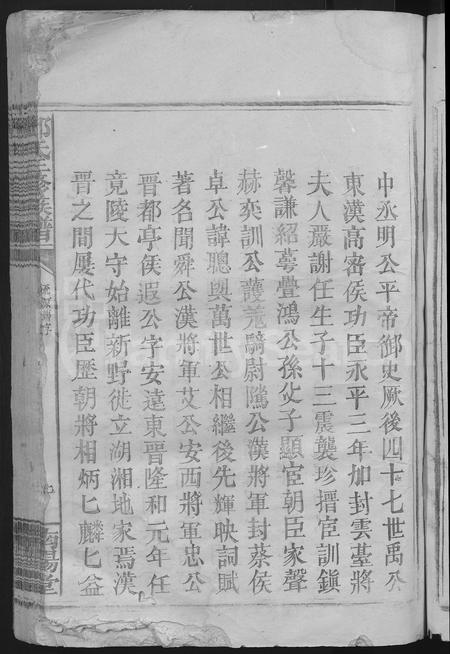 中丞明公平帝御史厥後四十七世禹公
東漢高密侯功臣永平三年加封雲臺將
夫人嚴謝任生子十三震襲珍搢宦訓鎮
馨謙紹萼疊鴻公孫父子顯宦朝臣家聲
赫奕訓公護羗騎尉隲公漢將軍封蔡侯
卓公諱聰與萬世公相繼後先輝映詞賦
著名聞舜公漢將軍艾公安西將軍忠公
晉都亭侯遐公字安遠東晉隆和元年任
竟陵大守始離新野徙立湖湘地家焉漢
晉之間屢代功臣歷朝將相炳匕麟匕益
鄧氏三修族譜
南陽堂